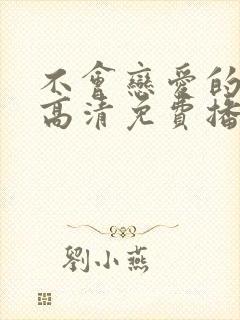 不會戀愛的
高清免費播
劉小燕